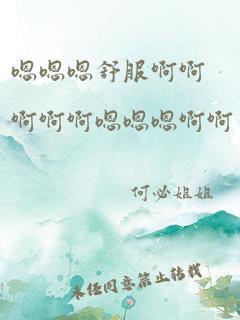 嗯嗯嗯舒服啊啊
啊啊啊嗯嗯嗯啊啊
何必姐姐
未经同意禁止转载